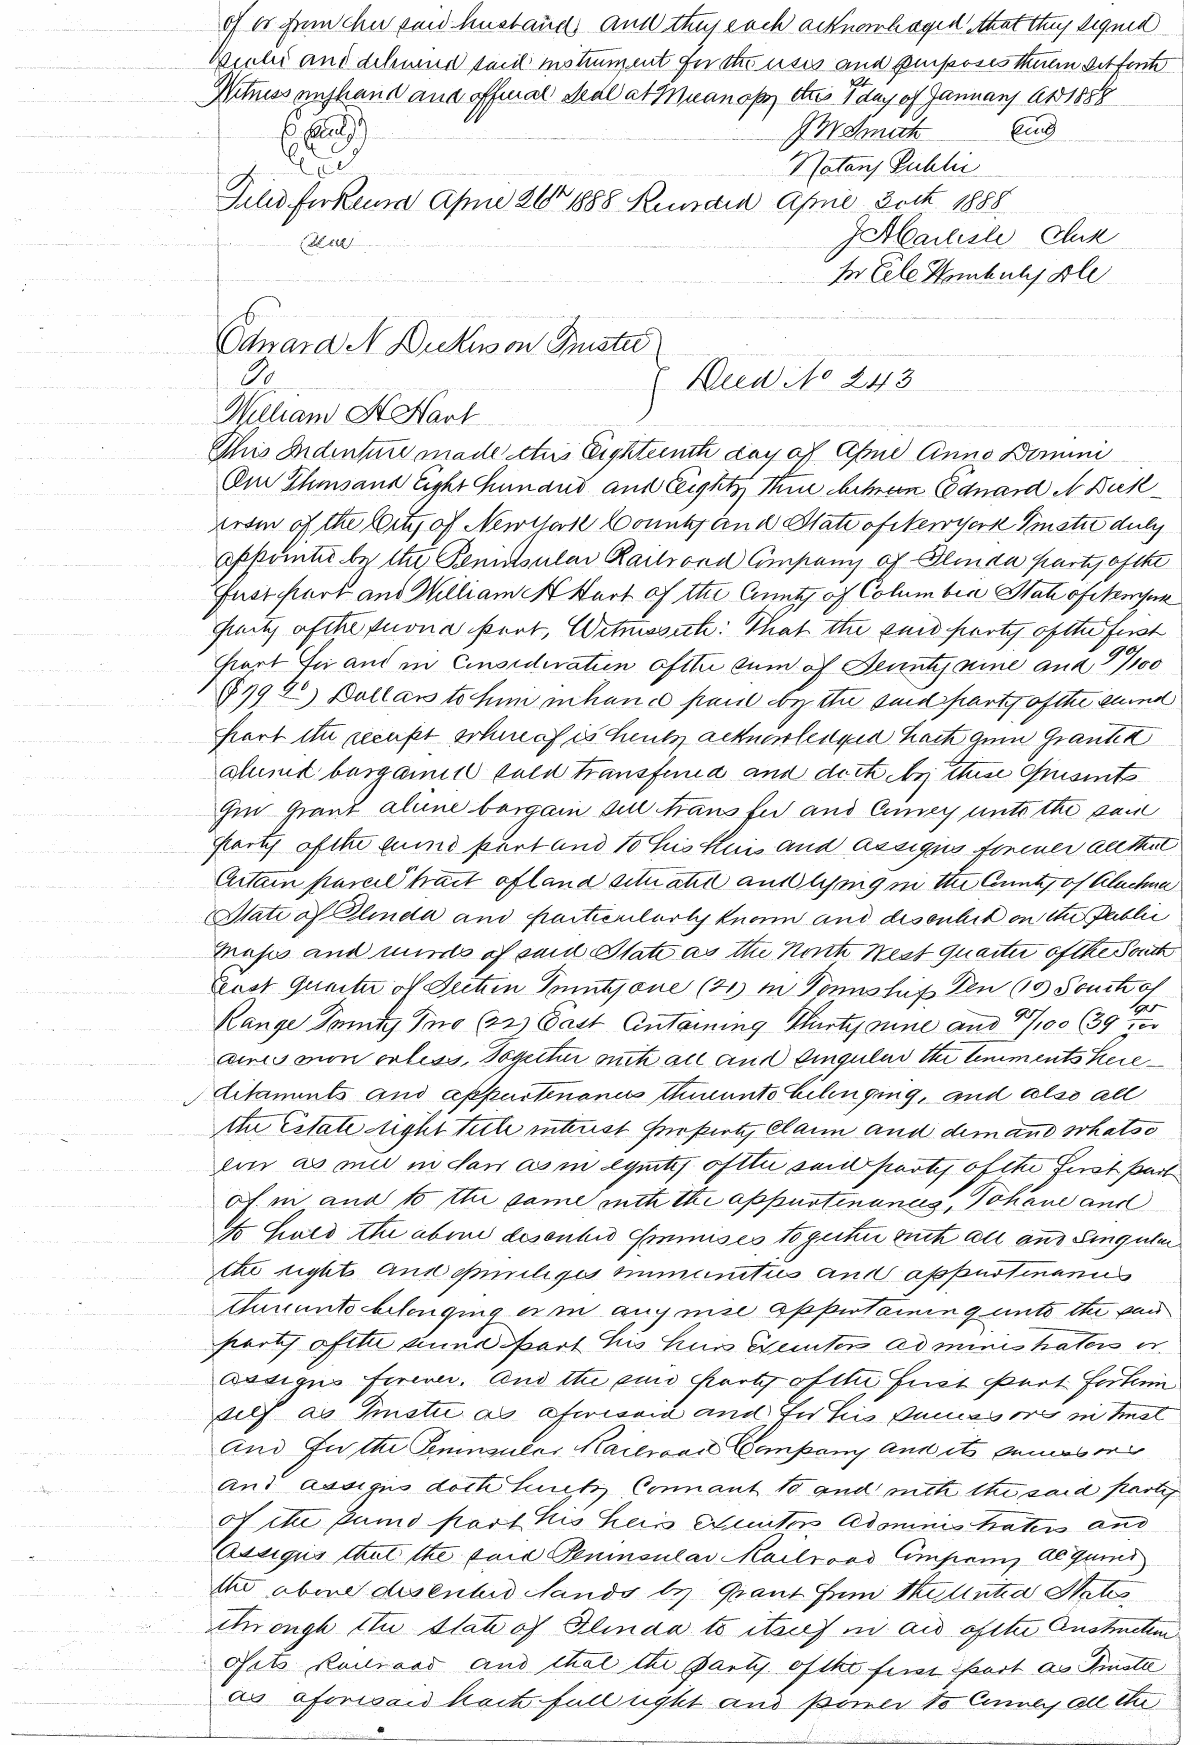 of or from her said husband, and they each acknowledged that they signed
sealed and delivered said instrument for the uses and purposes therein set forth
Witness my hand and official seal at Micanopy this 7th day of January AD 1888
J W Smith
Notary Public
Filed for Record April 26th 1888 Recorded April 30th 1888
(Seal)
J A Carlisle Clerk
pr
Edward N Dickerson Trustee
To
Deed No 243
William H Hart
This Indenture made this Eighteenth day of April Anno Domini
One Thousand Eight hundred and Eighty three between Edward N Dick-
erson of the City of New York County and State of New York Trustee duly
appointed by the Peninsular Railroad Company of Florida party of the
first part and William H Hart of the County of Columbia State of New York
party of the second part, Witnesseth: That the said party of the first
part for and in Consideration of the sum of Seventy nine and 90/100
($79 90) Dollars to him in hand paid by the said party of the second
part the receipt whereof is hereby acknowledged hath given Granted
aliened bargained sold transferred and doth by these presents
give grant aliene bargain sell transfer and Convey unto the said
party of the second part and to his heirs and assigns forever all that
Certain parcel tract of land situated and lying in the County of Alachua
State of Florida and particularly known and described on the Public
maps and records of said State as the North West Quarter of the South
East Quarter of Section Twenty one (21) in Township Ten (10) South of
Range Twenty Two (22) East Containing Thirty nine and 95/100 (39 95/100
acres more or less, Together with all and singular the tenements here-
ditaments and appurtenances thereunto belonging, and also all
the Estate right title interest property Claim and demand whatso
ever as well in Law as in equity of the said party of the first part
of in and to the same with the appurtenances, To have and
to hold the above described premises together with all and singular
the rights and privileges immunities and appurtenances
thereunto belonging or in any wise appertaining unto the said
party of the second part his heirs Executors administrators or
assigns forever. And the said party of the first part for him
self as Trustee as aforesaid and for his successors in trust
and for the Peninsular Railroad Company and its successors
and assigns doth hereby Covenant to and with the said party
of the second part his heirs Executors Administrators and
Assigns that the said Peninsular Railroad Company acquired
the above described lands by Grant from the United States
through the State of Florida to itself in aid of the Construction
of its Railroad and that the Party of the first part as Trustee
as aforesaid hath full right and power to Convey all the